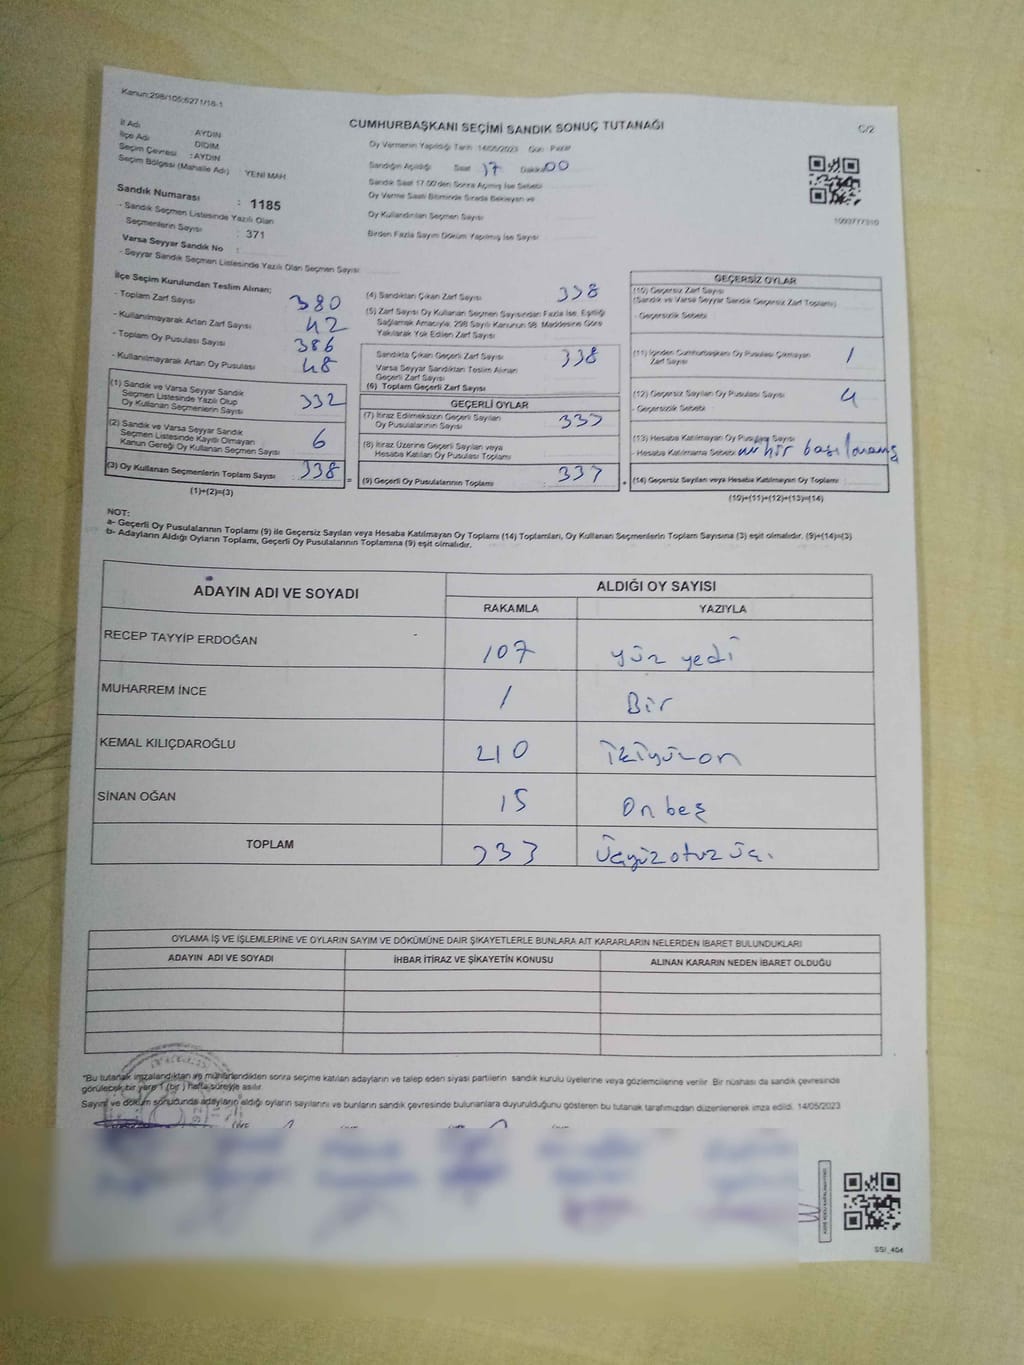 Kanun:298/105;6271/18-1
CUMHURBAŞKANI SEÇİMİ SANDIK SONUÇ TUTANAĞI
C/2
İl Adı : AYDIN
İlçe Adı : DİDİM
Seçim Çevresi : AYDIN
Seçim Bölgesi (Mahalle Adı) : YENİ MAH
Sandık Numarası : 1185
- Sandık Seçmen Listesinde Yazılı Olan
Seçmenlerin Sayısı : 371
Varsa Seyyar Sandık No :
- Seyyar Sandık Seçmen Listesinde Yazılı Olan Seçmen Sayısı
Oy Vermenin Yapıldığı Tarih 14/05/2023 Gün : Pazar
Sandığın Açıldığı Saat 17 Dakika 00
Sandık Saat 17.00'den Sonra Açılmış İse Sebebi
Oy Verme Saati Bitiminde Sırada Bekleyen ve
Oy Kullandırılan Seçmen Sayısı
Birden Fazla Sayım Döküm Yapılmış İse Sayısı
1093777310
İlçe Seçim Kurulundan Teslim Alınan;
- Toplam Zarf Sayısı 380
- Kullanılmayarak Artan Zarf Sayısı 42
- Toplam Oy Pusulası Sayısı 386
- Kullanılmayarak Artan Oy Pusulası 48
(1) Sandık ve Varsa Seyyar Sandık
Seçmen Listesinde Yazılı Olup
Oy Kullanan Seçmenlerin Sayısı 332
(2) Sandık ve Varsa Seyyar Sandık
Seçmen Listesinde Kayıtlı Olmayan
Kanun Gereği Oy Kullanan Seçmen Sayısı 6
(3) Oy Kullanan Seçmenlerin Toplam Sayısı 338
(1)+(2)=(3)
(4) Sandıktan Çıkan Zarf Sayısı 338
(5) Zarf Sayısı Oy Kullanan Seçmen Sayısından Fazla İse, Eşitliği
Sağlamak Amacıyla, 298 Sayılı Kanunun 98. Maddesine Göre
Yakılarak Yok Edilen Zarf Sayısı
Sandıkta Çıkan Geçerli Zarf Sayısı 338
Varsa Seyyar Sandıktan Teslim Alınan
Geçerli Zarf Sayısı
(6) Toplam Geçerli Zarf Sayısı
GEÇERLİ OYLAR
(7) İtiraz Edilmeksizin Geçerli Sayılan
Oy Pusulalarının Sayısı 333
(8) İtiraz Üzerine Geçerli Sayılan veya
Hesaba Katılan Oy Pusulası Toplamı
(9) Geçerli Oy Pusulalarının Toplamı 333
GEÇERSİZ OYLAR
(10) Geçersiz Zarf Sayısı
(Sandık ve Varsa Seyyar Sandık Geçersiz Zarf Toplamı)
- Geçersizlik Sebebi
(11) İçinden Cumhurbaşkanı Oy Pusulası Çıkmayan
Zarf Sayısı 1
(12) Geçersiz Sayılan Oy Pusulası Sayısı 4
- Geçersizlik Sebebi
(13) Hesaba Katılmayan Oy Pusulası Sayısı
- Hesaba Katılmama Sebebi mühür basılmamış
(14) Geçersiz Sayılan veya Hesaba Katılmayan Oy Toplamı
(10)+(11)+(12)+(13)=(14)
NOT:
a- Geçerli Oy Pusulalarının Toplamı (9) ile Geçersiz Sayılan veya Hesaba Katılmayan Oy Toplamı (14) Toplamları, Oy Kullanan Seçmenlerin Toplam Sayısına (3) eşit olmalıdır. (9)+(14)=(3)
b- Adayların Aldığı Oyların Toplamı, Geçerli Oy Pusulalarının Toplamına (9) eşit olmalıdır.
ADAYIN ADI VE SOYADI
ALDIĞI OY SAYISI
RAKAMLA YAZIYLA
RECEP TAYYİP ERDOĞAN 107 yüz yedi
MUHARREM İNCE 1 Bir
KEMAL KILIÇDAROĞLU 210 ikiyüzon
SİNAN OĞAN 15 Onbeş
TOPLAM 333 Üçyüzotuz üç.
OYLAMA İŞ VE İŞLEMLERİNE VE OYLARIN SAYIM VE DÖKÜMÜNE DAİR ŞİKAYETLERLE BUNLARA AİT KARARLARIN NELERDEN İBARET BULUNDUKLARI
ADAYIN ADI VE SOYADI İHBAR İTİRAZ VE ŞİKAYETİN KONUSU ALINAN KARARIN NEDEN İBARET OLDUĞU
*Bu tutanak imzalandıktan ve mühürlendikten sonra seçime katılan adayların ve talep eden siyasi partilerin sandık kurulu üyelerine veya gözlemcilerine verilir. Bir nüshası da sandık çevresinde
görülecek bir yere 1 (bir) hafta süreyle asılır.
Sayım ve döküm sonucunda adayların aldığı oyların sayılarını ve bunların sandık çevresinde bulunanlara duyurulduğunu gösteren bu tutanak tarafımızdan düzenlenerek imza edildi. 14/05/2023
SSI_404